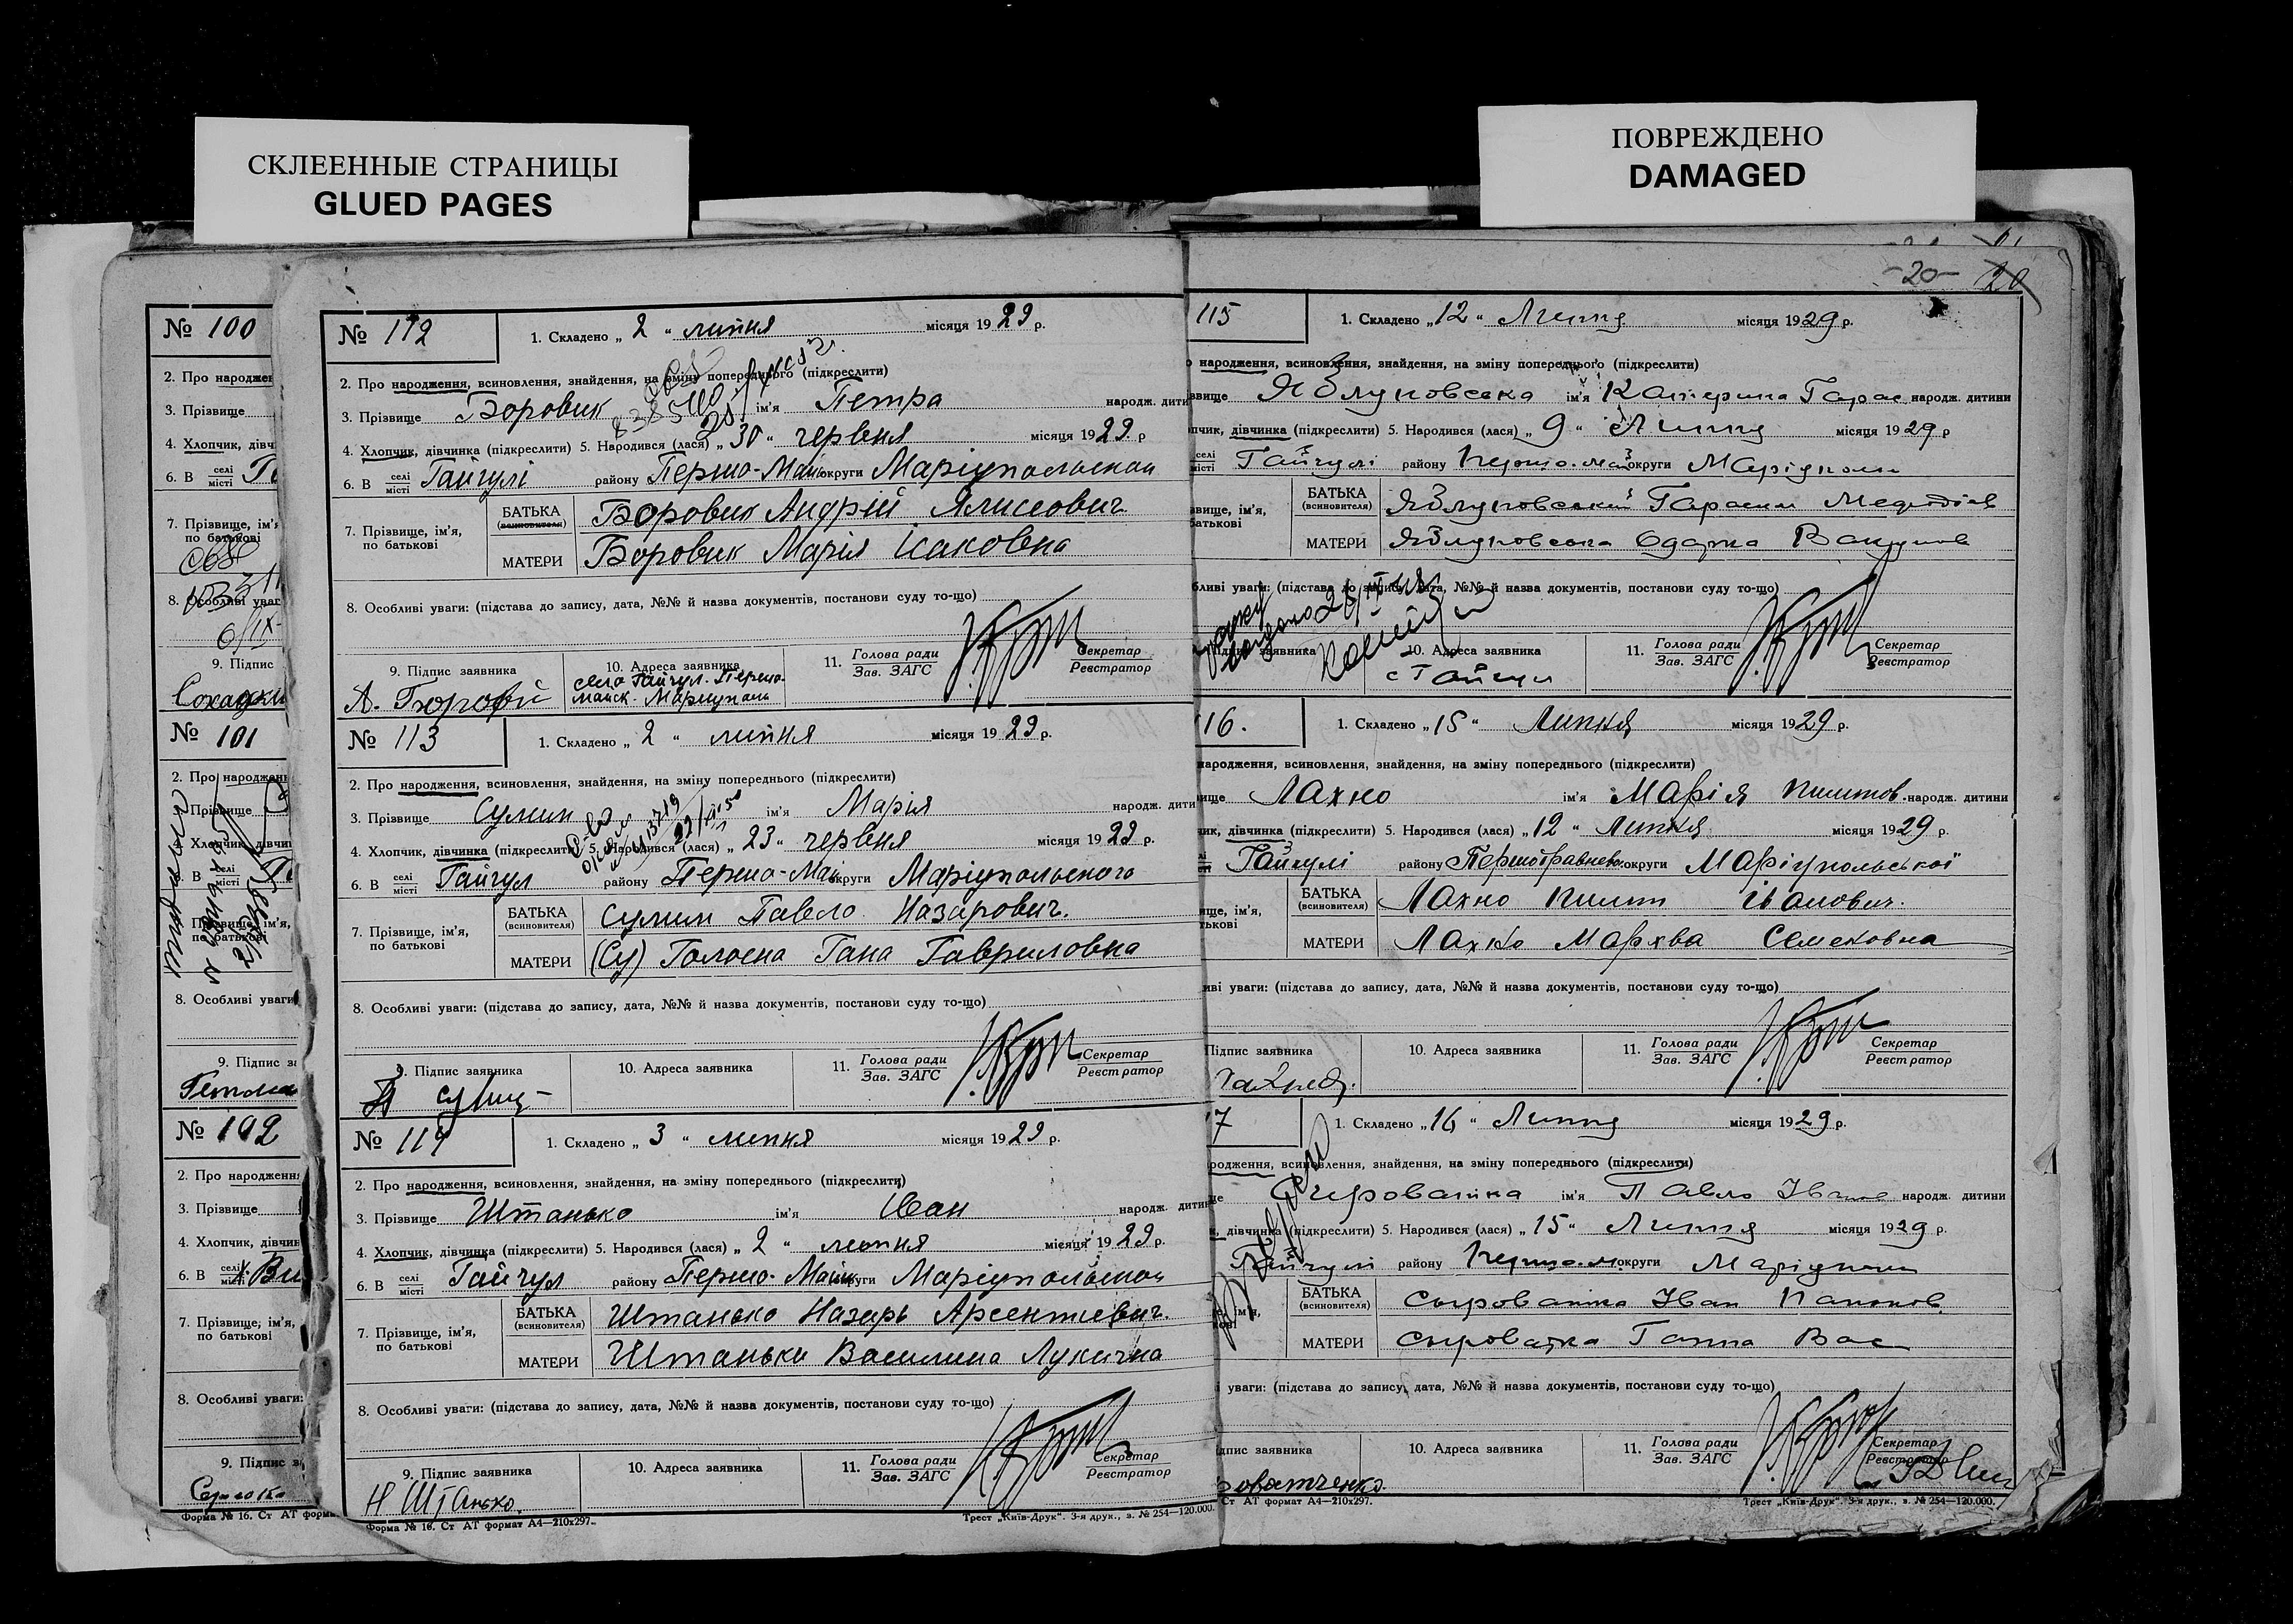 СКЛЕЕННЫЕ СТРАНИЦЫ
GLUED PAGES
ПОВРЕЖДЕНО
DAMAGED
№ 100
2. Про народжен
3. Прізвище
4. Хлопчик, дівч
6. В селі місті
7. Прізвище, ім'я
по батькові
8. Особливі уваг
9. Підпис
№ 101
2. Про народженн
Прізвище
Хлопчик, дівчи
В селі місті
Прізвище, ім'я,
по батькові
8. Особливі уваги
9. Підпис за
№ 102
2. Про народження
3. Прізвище
4. Хлопчик, дівчин
6. В селі місті
7. Прізвище, ім'я,
по батькові
8. Особливі уваги:
9. Підпис з
Форма № 16. Ст АТ форм
№ 112
1. Складено „ 2 " липня місяця 19 29 р.
2. Про народження, всиновлення, знайдення, на зміну попереднього (підкреслити)
3. Прізвище Боровик ім'я Петра народж. дити
4. Хлопчик, дівчинка (підкреслити) 5. Народився (лася) „ 30 " червня місяця 19 29 р
6. В селі місті Гайчулі району Першо-Май округи Маріупольскои
7. Прізвище, ім'я, по батькові
БАТЬКА (всиновителя) Боровик Андрій
МАТЕРИ Боровик Марія Ісаковна
8. Особливі уваги: (підстава до запису, дата, №№ й назва документів, постанови суду то-що)
9. Підпис заявника
10. Адреса заявника
село Гайчул. Першо-
майск. Мариуполь
11. Голова ради Зав. ЗАГС
Секретар Реєстратор
№ 113
1. Складено „ 2 " липня місяця 19 29 р.
2. Про народження, всиновлення, знайдення, на зміну попереднього (підкреслити)
3. Прізвище Сулим ім'я Марія народж. дити
4. Хлопчик, дівчинка (підкреслити) 5. Народився (лася) „ 23 " червня місяця 19 29 р.
6. В селі місті Гайчул району Першо-Май округи Маріупольского
7. Прізвище, ім'я, по батькові
БАТЬКА (всиновителя) Сулим Павело Назарович.
МАТЕРИ (Су) Гана Гавриловна
8. Особливі уваги: (підстава до запису, дата, №№ й назва документів, постанови суду то-що)
9. Підпис заявника
10. Адреса заявника
11. Голова ради Зав. ЗАГС
Секретар Реєстратор
№ 114
1. Складено „ 3 " липня місяця 19 29 р.
2. Про народження, всиновлення, знайдення, на зміну попереднього (підкреслити)
3. Прізвище Штанько ім'я Іван народж. дитин
4. Хлопчик, дівчинка (підкреслити) 5. Народився (лася) „ 2 " липня місяця 19 29 р.
6. В селі місті Гайчул району Першо-Май округи Маріупольскои
7. Прізвище, ім'я, по батькові
БАТЬКА (всиновителя) Штанько Назарь Арсентиевич.
МАТЕРИ Штанько Василина Лукична
8. Особливі уваги: (підстава до запису, дата, №№ й назва документів, постанови суду то-що)
9. Підпис заявника
Н Штанько.
10. Адреса заявника
11. Голова ради Зав. ЗАГС
Секретар Реєстратор
Форма № 16. Ст АТ формат А4—210х297.
Трест „Київ-Друк". 3-я друк., з. № 254—120.000.
-20- 20
115
1. Складено „ 12 " Липня місяця 19 29 р.
народження, всиновлення, знайдення, на зміну попереднього (підкреслити)
звище Яблуновська ім'я Катерина Гарас народж. дитини
пчик, дівчинка (підкреслити) 5. Народився (лася) „ 9 " Липня місяця 19 29 р
селі місті Гайчулі району Першо-май округи Маріуполь
звище, ім'я,
батькові
БАТЬКА (всиновителя) Яблуновський
МАТЕРИ Яблуновська Одарка
бливі уваги: (підстава до запису, дата, №№ й назва документів, постанови суду то-що)
підпис заявника
10. Адреса заявника
с Гайчул
11. Голова ради Зав. ЗАГС
Секретар Реєстратор
16.
1. Складено „ 15 " Липня місяця 19 29 р.
народження, всиновлення, знайдення, на зміну попереднього (підкреслити)
ище Лахно ім'я Марія Пилипов. народж. дитини
чик, дівчинка (підкреслити) 5. Народився (лася) „ 12 " Липня місяця 19 29 р.
Гайчулі району Першотравнево округи Маріупольської
ище, ім'я,
тькові
БАТЬКА (всиновителя) Лахно Пилип Іванович.
МАТЕРИ Лахно Мархва Семеновна
иві уваги: (підстава до запису, дата, №№ й назва документів, постанови суду то-що)
Підпис заявника
10. Адреса заявника
11. Голова ради Зав. ЗАГС
Секретар Реєстратор
7
1. Складено „ 16 " Липня місяця 19 29 р.
родження, всиновлення, знайдення, на зміну попереднього (підкреслити)
ім'я Павло Іванов народж. дитини
дівчинка (підкреслити) 5. Народився (лася) „ 15 " Липня місяця 19 29 р.
Гайчулі району Першо-м. округи Маріуполь
БАТЬКА (всиновителя) Сыроватка Іван
МАТЕРИ Сыроватка Ганна Вас
уваги: (підстава до запису, дата, №№ й назва документів, постанови суду то-що)
дпис заявника
оватченко.
10. Адреса заявника
11. Голова ради Зав. ЗАГС
Секретар Реєстратор
Ст АТ формат А4—210х297.
Трест „Київ-Друк". 3-я друк., з. № 254—120.000.